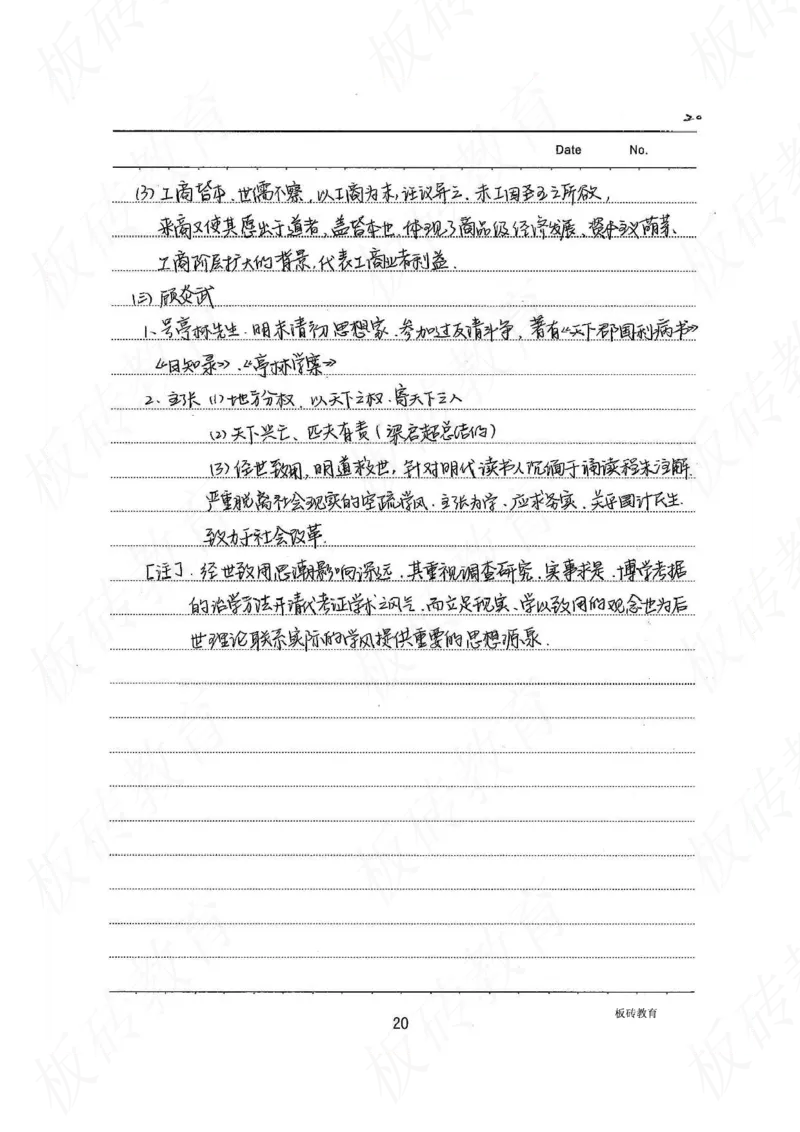 20
Date No.
(3) 工商皆本. 世儒不察, 以工商为末, 妄议异之. 夫工固圣王之所欲,
来商又使其愿出于道者, 盖皆本也. 体现了商品级经济发展、资本主义萌芽、
工商阶层扩大的背景, 代表工商业者利益.
(三) 顾炎武
1、号亭林先生. 明末清初思想家. 参加过反清斗争, 著有《天下郡国利病书》
《日知录》、《亭林学案》
2、主张 (1) 地方分权, 以天下之权. 寄天下之人
(2) 天下兴亡、匹夫有责 (梁启超总结的)
(3) 经世致用, 明道救世, 针对明代读书人沉湎于诵读程朱注解
严重脱离社会现实的空疏学风. 主张为学、应求务实、关乎国计民生.
致力于社会改革.
[注]. 经世致用思潮影响深远. 其重视调查研究、实事求是、博学考据
的治学方法开清代考证学术之风气. 而立足现实、学以致用的观念也为后
世理论联系实际的学风提供重要的思想源泉.
20
板砖教育
板砖教育